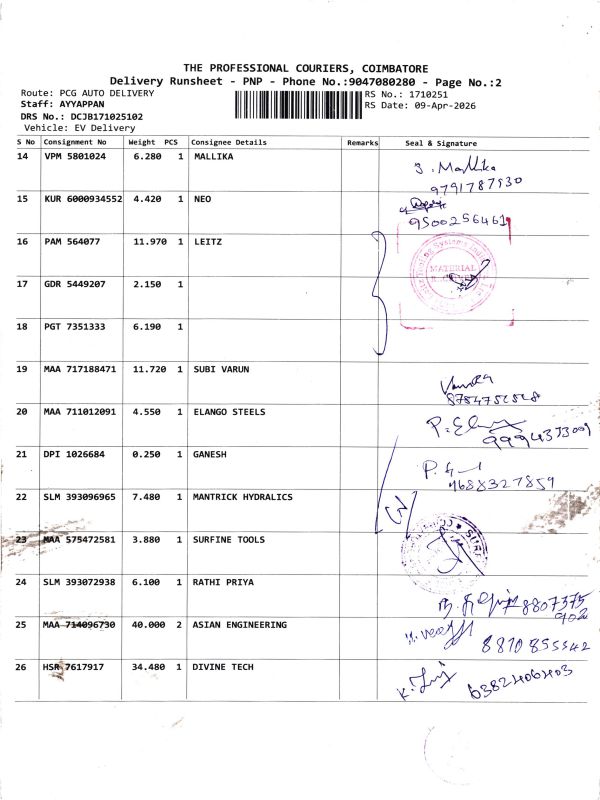 THE PROFESSIONAL COURIERS, COIMBATORE
Delivery Runsheet - PNP - Phone No.:9047080280 - Page No.:2
Route: PCG AUTO DELIVERY
RS No.: 1710251
Staff: AYYAPPAN
RS Date: 09-Apr-2026
DRS No.: DCJB171025102
Vehicle: EV Delivery
S No Consignment No Weight PCS Consignee Details Remarks Seal & Signature
14 VPM 5801024 6.280 1 MALLIKA J. Mallika
9791787930
15 KUR 6000934552 4.420 1 NEO
9500256461
16 PAM 564077 11.970 1 LEITZ
MATERIAL
17 GDR 5449207 2.150 1
18 PGT 7351333 6.190 1
19 MAA 717188471 11.720 1 SUBI VARUN
20 MAA 711012091 4.550 1 ELANGO STEELS
9994373009
21 DPI 1026684 0.250 1 GANESH
9688327859
22 SLM 393096965 7.480 1 MANTRICK HYDRALICS
23 MAA 575472581 3.880 1 SURFINE TOOLS
24 SLM 393072938 6.100 1 RATHI PRIYA
8807375
902
25 MAA 714096730 40.000 2 ASIAN ENGINEERING
8870855542
26 HSR 7617917 34.480 1 DIVINE TECH
6382406403